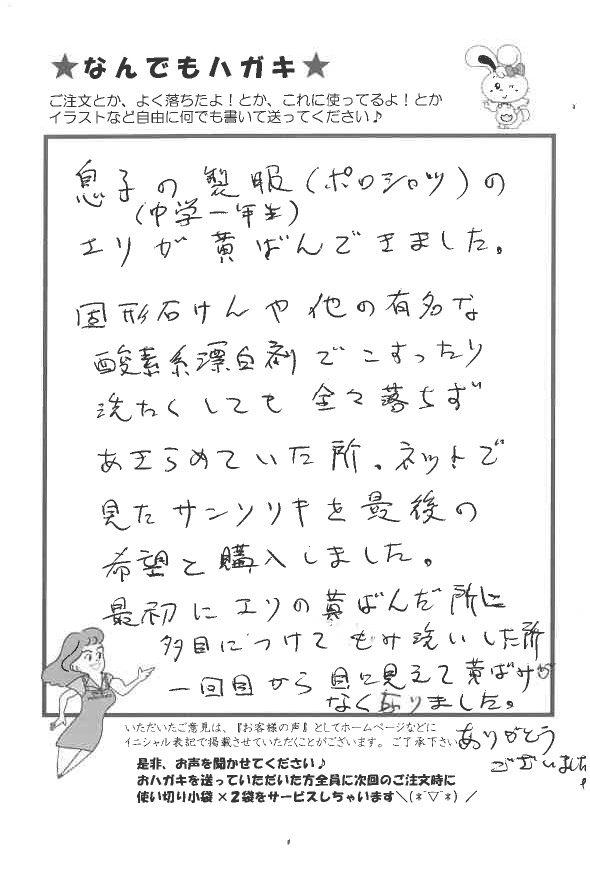 ★なんでもハガキ★
ご注文とか、よく落ちたよ！とか、これに使ってるよ！とか
イラストなど自由に何でも書いて送ってください♪
息子の製服（ポロシャツ）の
（中学一年生）
エリが黄ばんできました。
固形石けんや他の有名な
酸素系漂白剤でこすったり
洗たくしても全々落ちず
あきらめていた所、ネットで
見たサンソリキを最後の
希望と購入しました。
最初にエリの黄ばんだ所に
多目につけてもみ洗いした所
一回目から目に見えて黄ばみが
なくなりました。
ありがとう
ございました！
いただいたご意見は、『お客様の声』としてホームページなどに
イニシャル表記で掲載させていただくことがございます。ご了承下さい
是非、お声を聞かせてください♪
おハガキを送っていただいた方全員に次回のご注文時に
使い切り小袋×２袋をサービスしちゃいます＼(*ˉ▽ˉ*)／